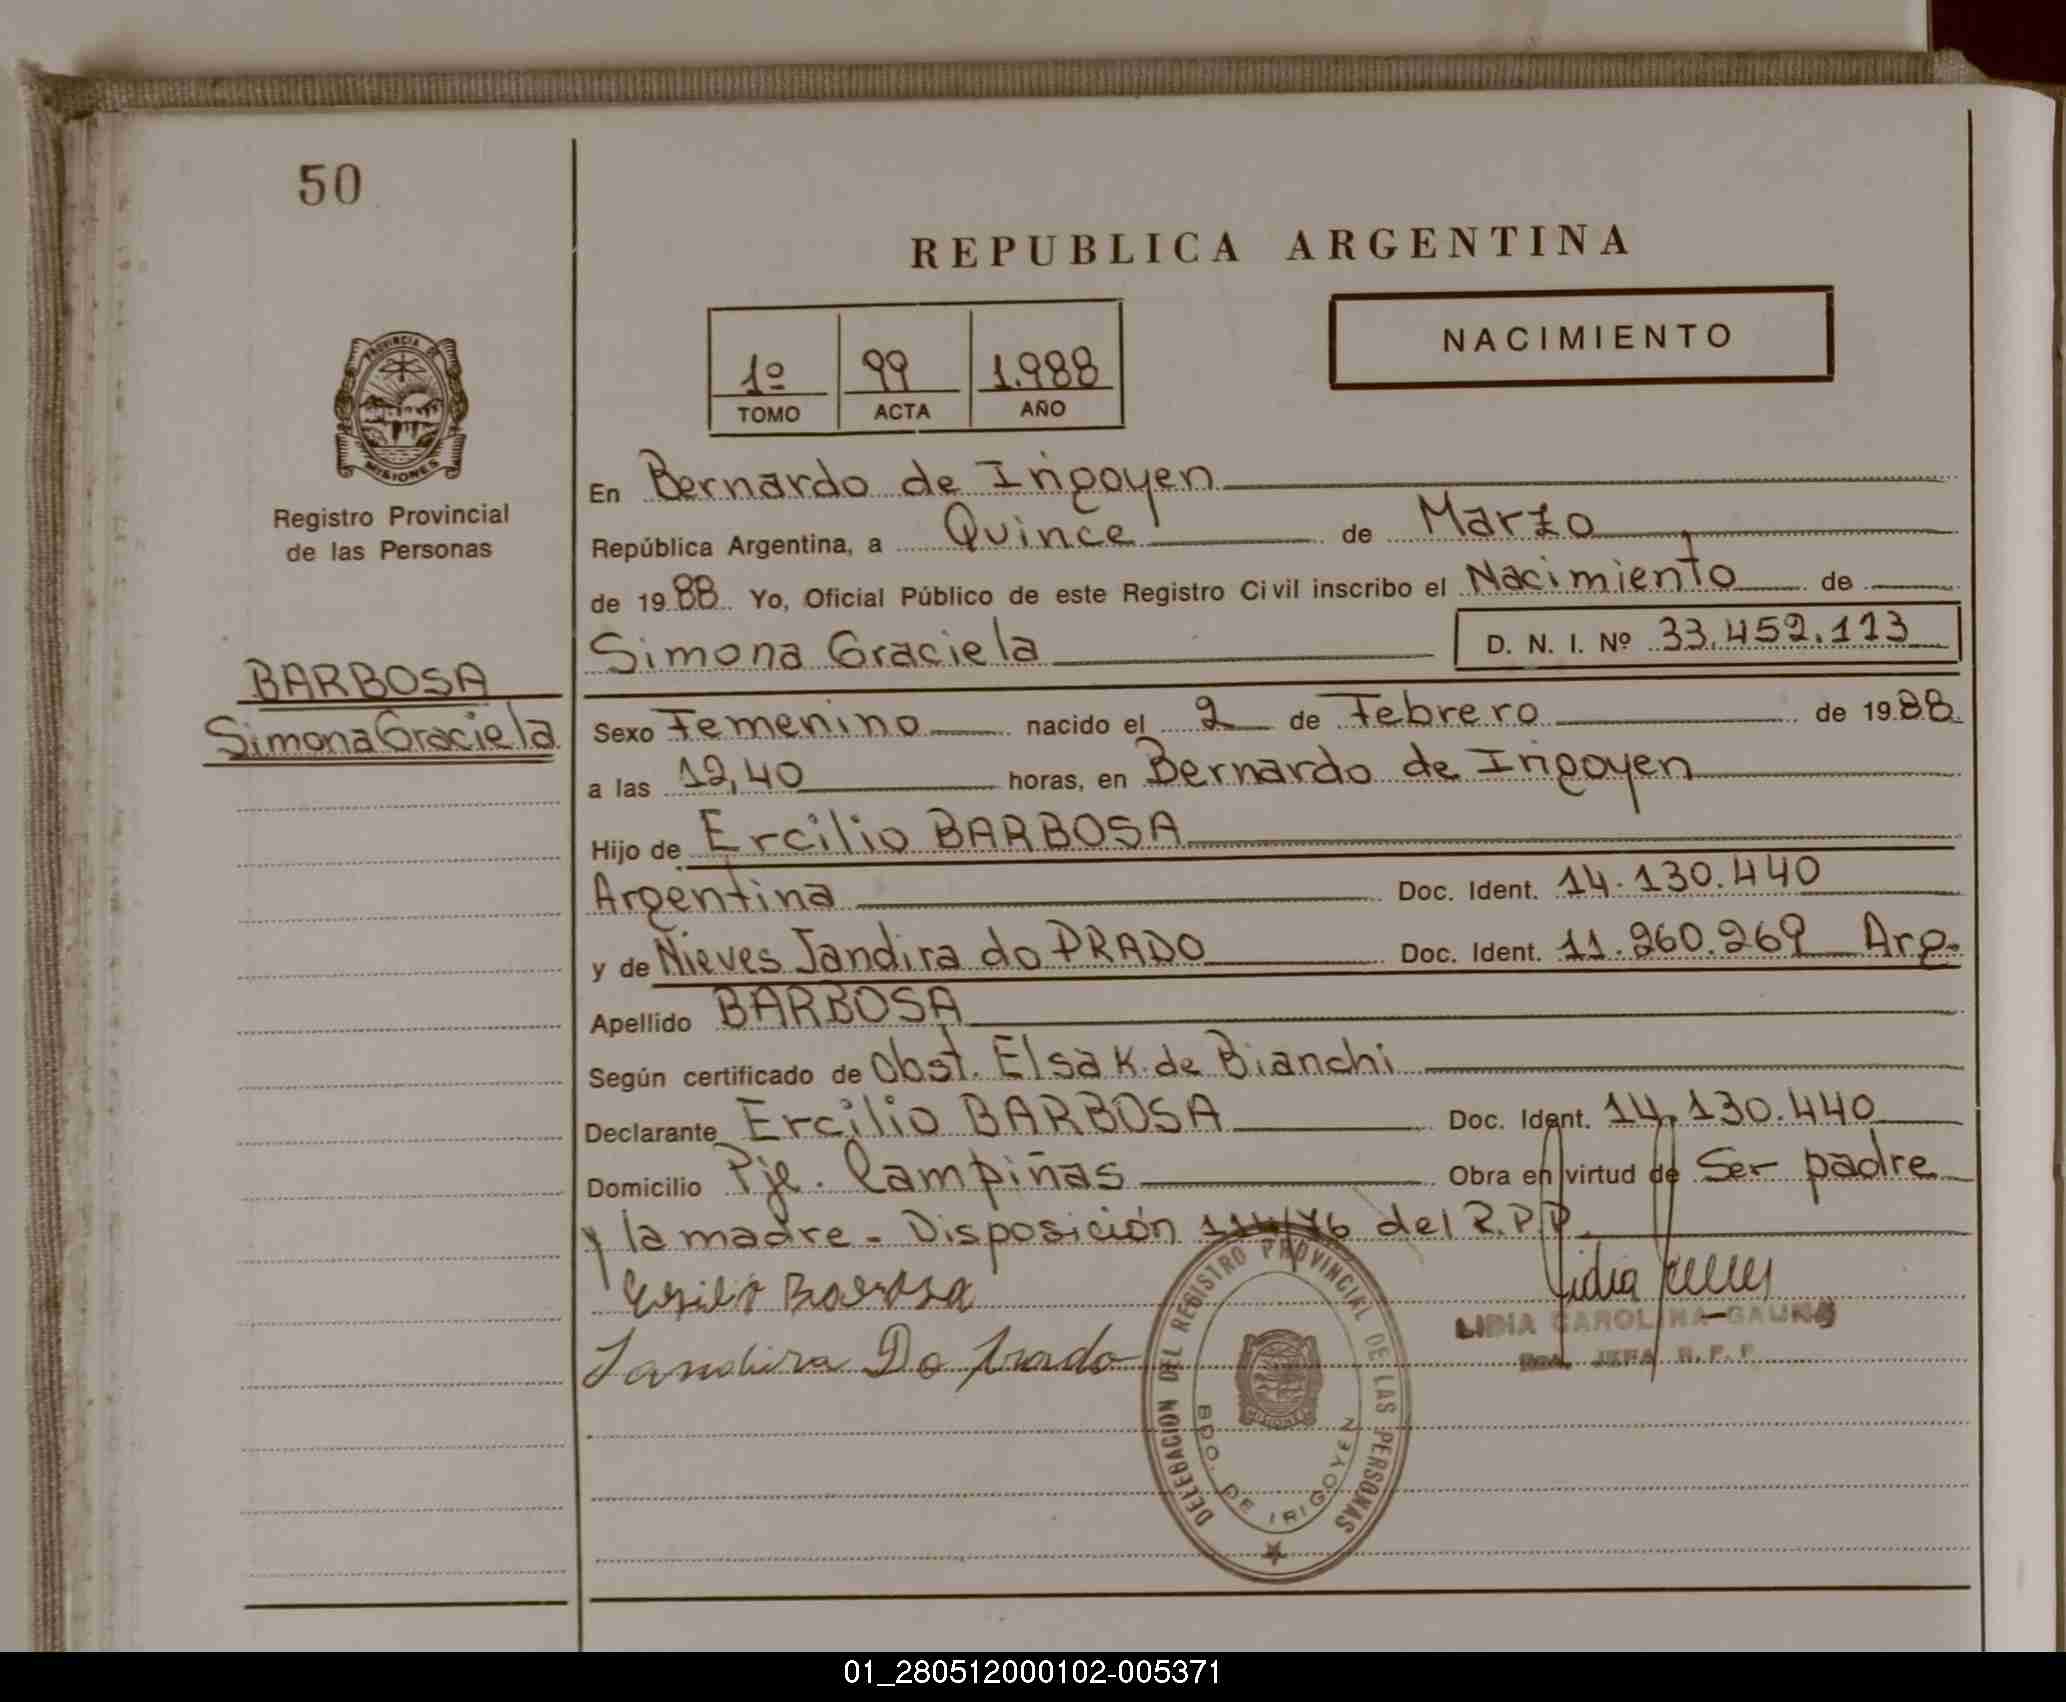 50
REPUBLICA ARGENTINA
NACIMIENTO
1º 99 1.988
TOMO ACTA AÑO
PROVINCIA DE
MISIONES
Registro Provincial
de las Personas
En Bernardo de Irigoyen
República Argentina, a Quince de Marzo
de 1988 Yo, Oficial Público de este Registro Civil inscribo el Nacimiento de
Simona Graciela D. N. I. Nº 33.452.123
BARBOSA
Simona Graciela
Sexo Femenino nacido el 2 de Febrero de 1988
a las 12,40 horas, en Bernardo de Irigoyen
Hijo de Ercilio BARBOSA
Argentina Doc. Ident. 14.130.440
y de Nieves Jandira do PRADO Doc. Ident. 11.260.269 Arg.
Apellido BARBOSA
Según certificado de Obst. Elsa K. de Bianchi
Declarante Ercilio BARBOSA Doc. Ident. 14.130.440
Domicilio Pje. Campiñas Obra en virtud de Ser padre
y la madre - Disposición 114/76 del R.P.P.
Ercilio Barbosa
Jandira Do Prado
LIDIA CAROLINA GAUNA
JEFA R.P.P.
DELEGACION DEL REGISTRO PROVINCIAL DE LAS PERSONAS
MISIONES
BDO. DE IRIGOYEN
01_280512000102-005371